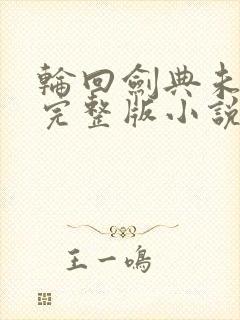 輪回劍典未
完整版小說
王一鳴